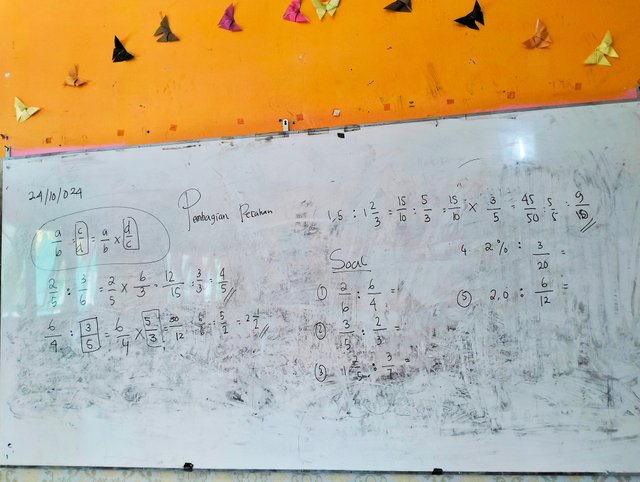 24/10/024
Pembagian Pecahan
a/b : c/d = a/b × d/c
2/5 : 3/6 = 2/5 × 6/3 = 12/15 : 3/3 = 4/5
6/4 : 3/5 = 6/4 × 5/3 = 30/12 : 6/6 = 5/2 = 2 1/2
1,5 : 1 2/3 = 15/10 : 5/3 = 15/10 × 3/5 = 45/50 : 5/5 = 9/10
Soal
① 2/6 : 6/4 =
② 3/5 : 2/3 =
③ 1 2/5 : 3/7 =
4 2% : 3/20 =
⑤ 2,0 : 6/12 =